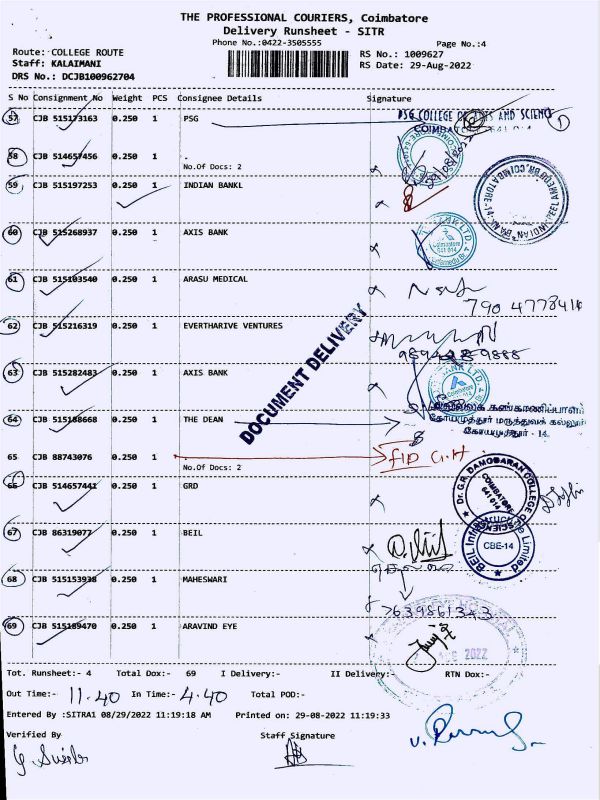 THE PROFESSIONAL COURIERS, Coimbatore
Delivery Runsheet - SITR
Phone No.:0422-3505555
Page No.:4
Route: COLLEGE ROUTE
Staff: KALAIMANI
DRS No.: DCJB100962704
RS No.: 1009627
RS Date: 29-Aug-2022
S No Consignment No Weight PCS Consignee Details Signature
57 CJB 515173163 0.250 1 PSG
PSG COLLEGE OF ARTS AND SCIENCE
COIMBATORE 641 014
58 CJB 514657456 0.250 1 .
No.Of Docs: 2
59 CJB 515197253 0.250 1 INDIAN BANKL
60 CJB 515268937 0.250 1 AXIS BANK
Coimbatore
641 014
61 CJB 515103540 0.250 1 ARASU MEDICAL
790 4778414
62 CJB 515216319 0.250 1 EVERTHARIVE VENTURES
63 CJB 515282483 0.250 1 AXIS BANK
DOCUMENT DELIVERY
64 CJB 515188668 0.250 1 THE DEAN
கோயமுத்தூர் மருத்துவக் கல்லூரி
கோயமுத்தூர் - 14.
65 CJB 88743076 0.250 1 .
No.Of Docs: 2
66 CJB 514657441 0.250 1 GRD
Dr. G.R. DAMODARAN COLLEGE OF SCIENCE
COIMBATORE
641 014
67 CJB 86319077 0.250 1 BEIL
BEIL Infrastructure Limited
CBE-14
68 CJB 515153938 0.250 1 MAHESWARI
7639861343
69 CJB 515189470 0.250 1 ARAVIND EYE
2022
Tot. Runsheet:- 4 Total Dox:- 69 I Delivery:- II Delivery:- RTN Dox:-
Out Time:- 11.40 In Time:- 4.40 Total POD:-
Entered By :SITRA1 08/29/2022 11:19:18 AM Printed on: 29-08-2022 11:19:33
Verified By
Staff Signature